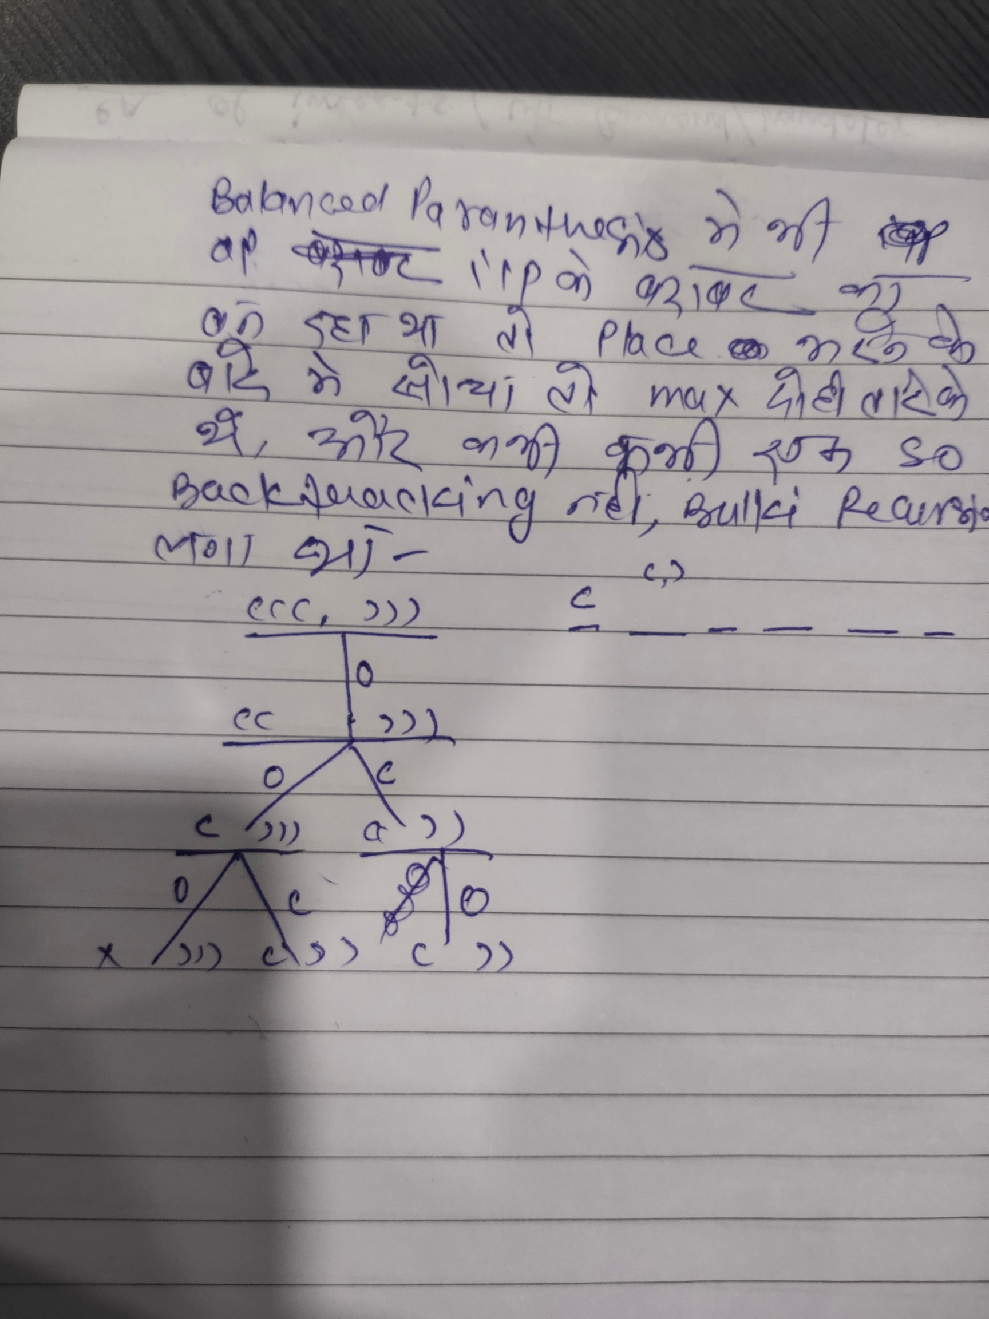 Balanced Paranthesis मे भी
op i/p के बराबर का
बन रहा था तो Place भरने के
बारे मे सोचा तो max दो ही तरिके
थे, और कभी कभी एक so
Backtracking नही, Bulki Recursio
लगा था -
(,)
(((, ))) ( _ _ _ _ _
O
(( )))
O C
( ))) ( ))
O C O
x ))) ( )) ( ))